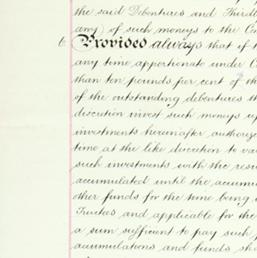 the said Debentures and Thirdl
any) of such moneys to the Co
6 Provided always that if t
any time apportionate under C
than ten pounds per cent of th
of the outstanding debentures th
discretion invest such moneys up
investments hereinafter authoriz
time at the like discretion to va
such investments with the resu
accumulated until the accumu
other funds for the time being
Trustees and applicable for the
a sum sufficient to pay such
accumulations and funds sh